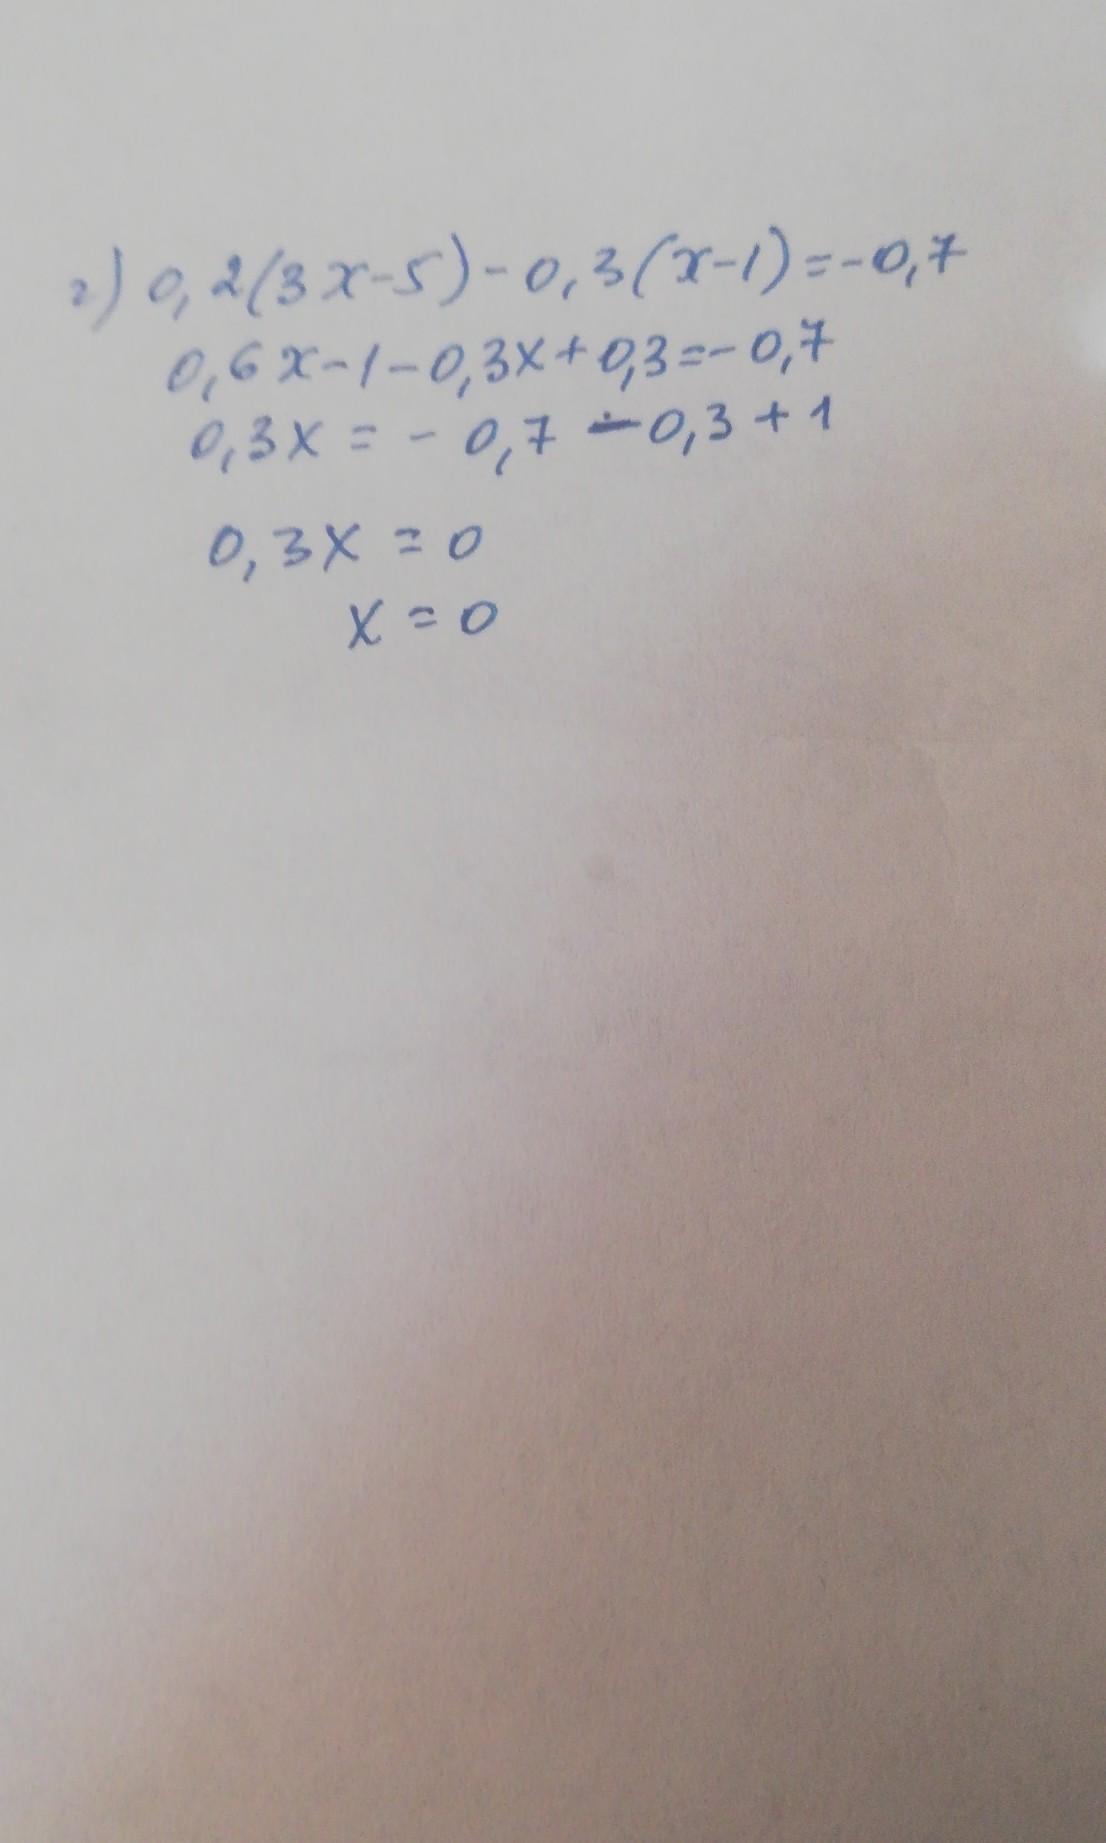 г) 0,2(3x-5)-0,3(x-1)=-0,7
0,6x-1-0,3x+0,3=-0,7
0,3x = - 0,7 - 0,3 + 1
0,3x = 0
x = 0